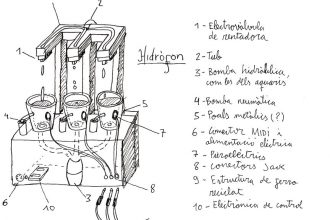 Hidrògon
1 - Electrovàlvula
de rentadora
2 - Tub
3 - Bomba hidràulica,
com les dels aquaris
4 - Bomba neumàtica
5 - Poals metàl·lics (?)
6 - Conector MIDI i
alimentació elèctrica
7 - Piezoelèctrics
8 - Conectors Jack
9 - Estructura de ferro
reciclat
10 - Electrònica de control
1
2
3
4
5
6
7
8
9
10